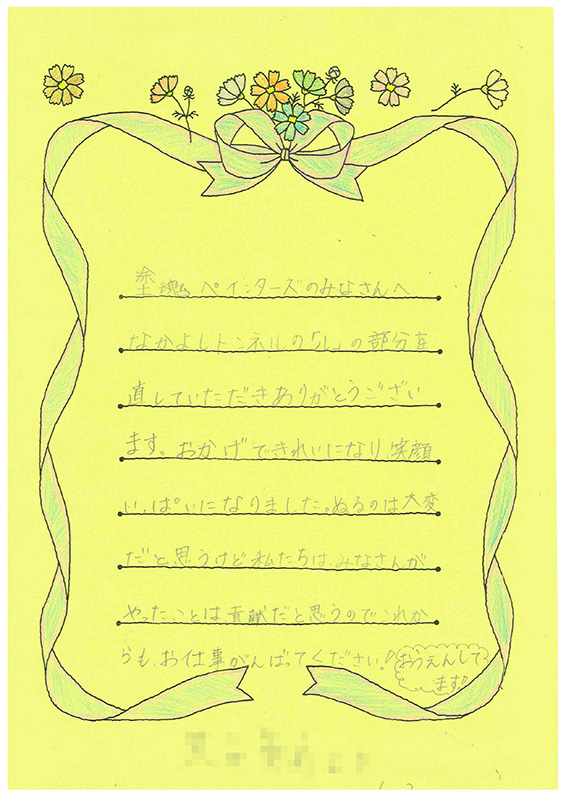 塗魂ペインターズのみなさんへ
なかよしトンネルの「ル」の部分を
直していただきありがとうござい
ます。おかげできれいになり、笑顔
いっぱいになりました。ぬるのは大変
だと思うけど私たちは、みなさんが
やったことは、貢献だと思うのでこれか
らも、お仕事がんばってください!
おうえんして
ます!